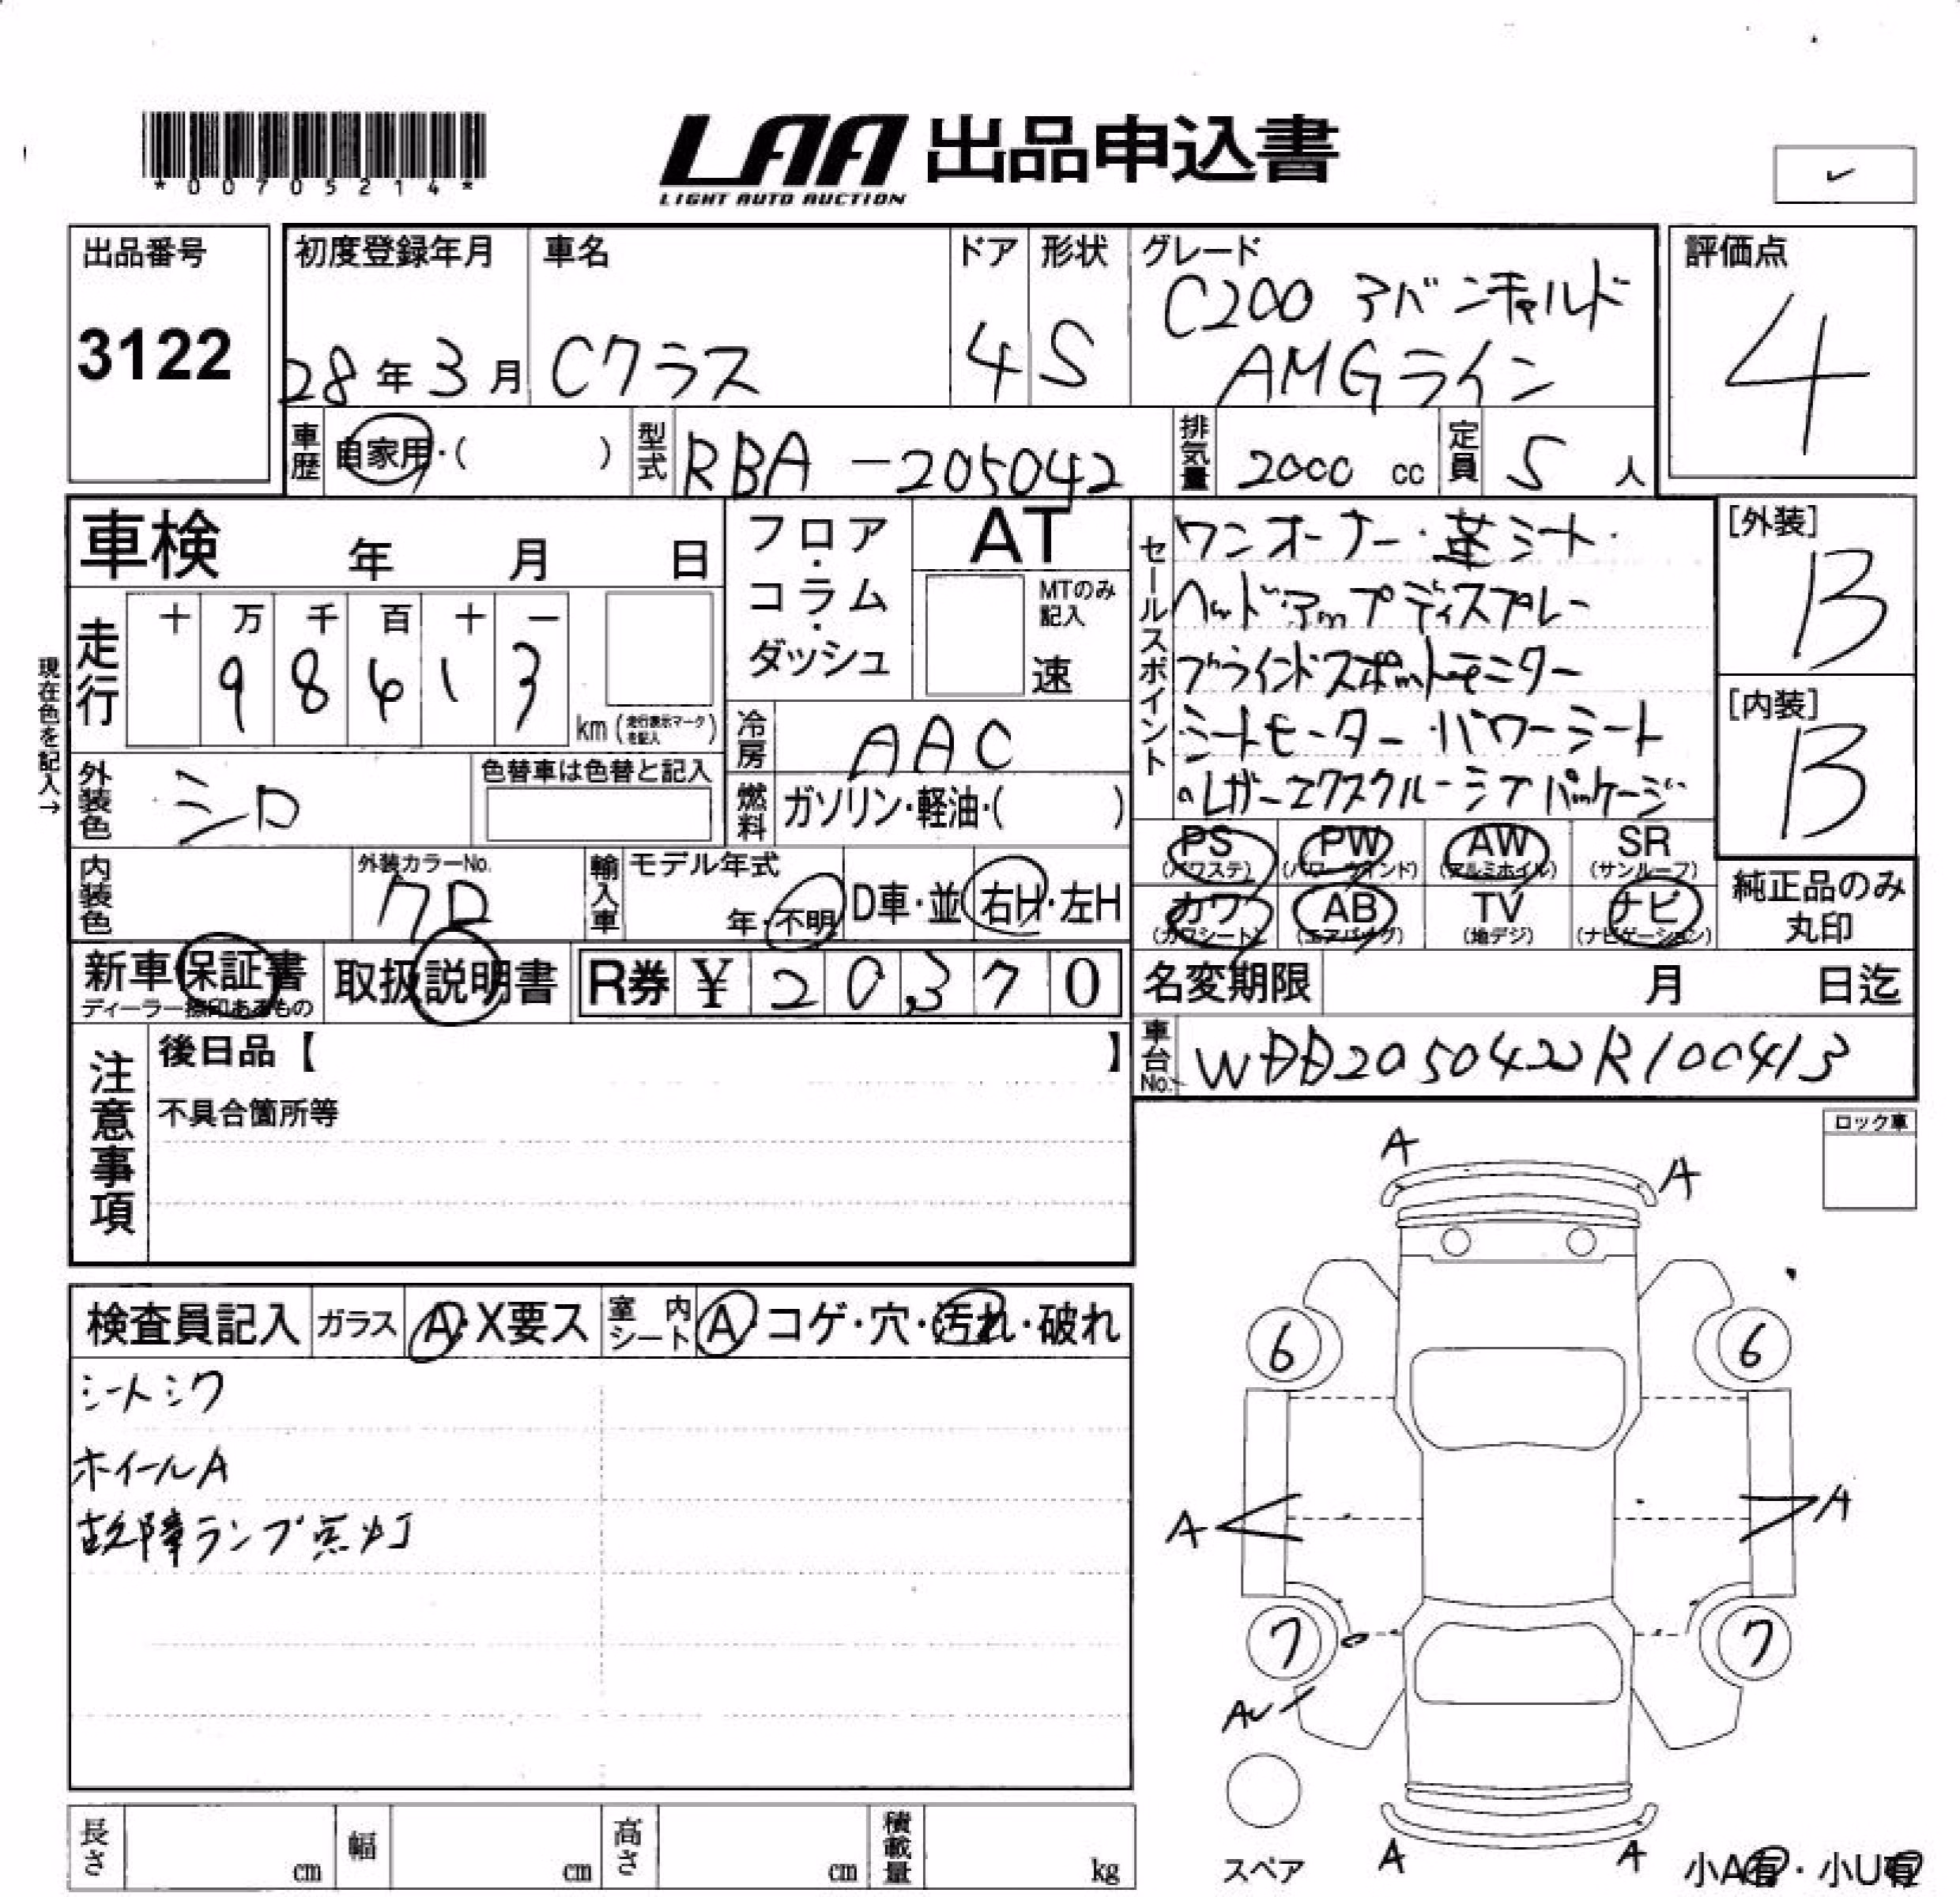 *00705214*
LAA 出品申込書
LIGHT AUTO AUCTION
出品番号
3122
初度登録年月
28年3月
車名
Cクラス
ドア
4
形状
S
グレード
C200 アバンギャルド
AMGライン
評価点
4
車歴 自家用・( )
型式 RBA-205042
排気量 2000 cc
定員 5人
車検 年 月 日
フロア・コラム・ダッシュ
AT
MTのみ記入
速
セールスポイント
ワンオーナー・革シート・
ヘッドアップディスプレー
ブラインドスポットモニター
シートモーター・パワーシート
レザーエクスクルーシブパッケージ
[外装]
B
[内装]
B
現在色を記入→
走行
十 万 千 百 十 一
98613
km(走行表示マークを記入)
冷房 AAC
外装色 シロ
色替車は色替と記入
燃料 ガソリン・軽油・( )
PS (パワステ)
PW (パワーウインド)
AW (アルミホイル)
SR (サンルーフ)
内装色 クロ
外装カラーNo.
輸入車 モデル年式
年・不明
D車・並
右H・左H
カワ (カワシート)
AB (エアバッグ)
TV (地デジ)
ナビ (ナビゲーション)
純正品のみ
丸印
新車保証書
ディーラー捺印あるもの
取扱説明書
R券 ¥20,370
名変期限 月 日迄
車台No. WDD2050422R100413
注意事項
後日品【 】
不具合箇所等
ロック車
A A
検査員記入 ガラス A・X要ス 室内シート A・コゲ・穴・汚れ・破れ
シートシワ
ホイールA
故障ランプ点灯
6 6
A A
7 7
スペア
A A
小A有・小U有
長さ cm 幅 cm 高さ cm 積載量 kg